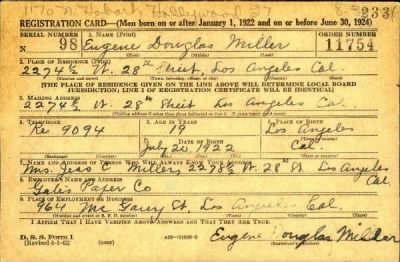 1170 N. Hobart, Hollywood 27
REGISTRATION CARD—(Men born on or after January 1, 1922 and on or before June 30, 1924)
SERIAL NUMBER 1. NAME (Print) ORDER NUMBER
98 Eugene Douglas Miller 11754
(First) (Middle) (Last)
2. PLACE OF RESIDENCE (Print)
2274½ W. 28th Street Los Angeles Cal.
(Number and street) (Town, township, village, or city) (County) (State)
[THE PLACE OF RESIDENCE GIVEN ON THE LINE ABOVE WILL DETERMINE LOCAL BOARD
JURISDICTION; LINE 2 OF REGISTRATION CERTIFICATE WILL BE IDENTICAL]
3. MAILING ADDRESS
2274½ W. 28th Street Los Angeles Cal.
4. TELEPHONE 5. AGE IN YEARS 6. PLACE OF BIRTH
Re 9094 19 Los Angeles
DATE OF BIRTH
July 20 1922 Cal
7. NAME AND ADDRESS OF PERSON WHO WILL ALWAYS KNOW YOUR ADDRESS
Mrs. Miller 2278½ W. 28th St. Los Angeles
8. EMPLOYER'S NAME AND ADDRESS Cal.
Paper Co
9. PLACE OF EMPLOYMENT OR BUSINESS
964 Mc Garry St. Los Angeles Cal.
I AFFIRM THAT I HAVE VERIFIED ABOVE ANSWERS AND THAT THEY ARE TRUE.
D. S. S. Form 1 Eugene Douglas Miller